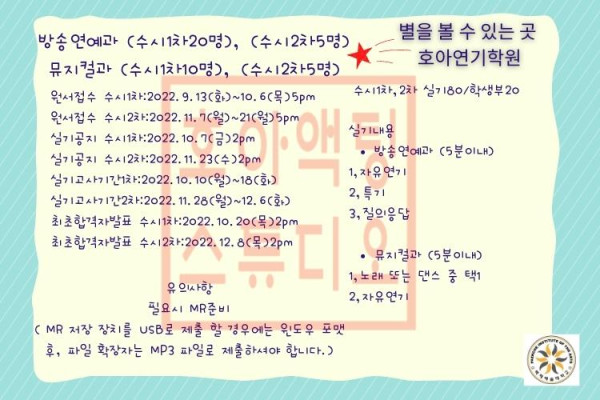 방송연예과 (수시1차20명), (수시2차5명)
뮤지컬과 (수시1차10명), (수시2차5명)
별을 볼 수 있는 곳
호아연기학원
원서접수 수시1차:2022. 9.13(화)~10.6(목)5pm
원서접수 수시2차:2022. 11.7(월)~21(월)5pm
실기공지 수시1차:2022. 10.7(금)2pm
실기공지 수시2차:2022. 11.23(수)2pm
실기고사기간1차:2022. 10.10(월)~18(화)
실기고사기간2차:2022. 11.28(월)~12.6(화)
최초합격자발표 수시1차:2022. 10.20(목)2pm
최초합격자발표 수시2차:2022. 12.8(목)2pm
수시1차,2차 실기80/학생부20
실기내용
• 방송연예과 (5분이내)
1,자유연기
2,특기
3,질의응답
• 뮤지컬과 (5분이내)
1,노래 또는 댄스 중 택1
2,자유연기
유의사항
필요시 MR준비
( MR 저장 장치를 USB로 제출 할 경우에는 윈도우 포맷
후, 파일 확장자는 MP3 파일로 제출하셔야 합니다.)
호아액팅
스튜디오